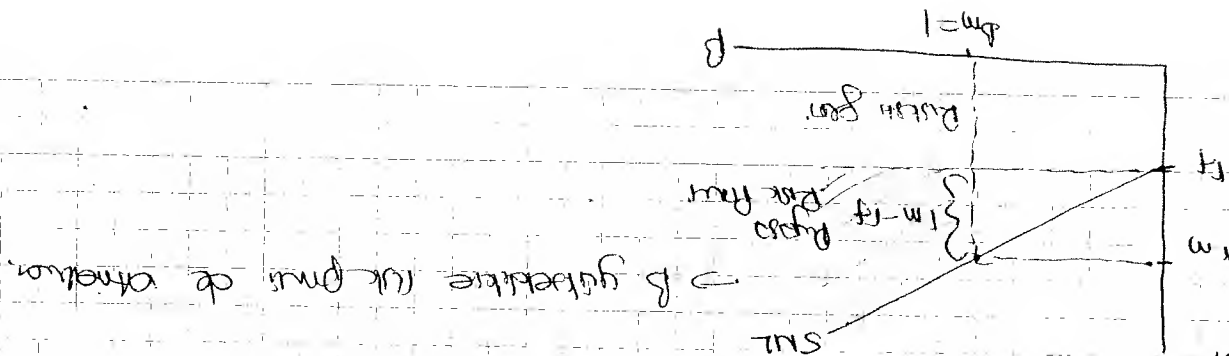 SML
→ β yükseldikçe risk primi de artmaktadır.
rm
rm-rf
Piyasa
Risk Primi
rf
Risksiz getiri
βm=1
β